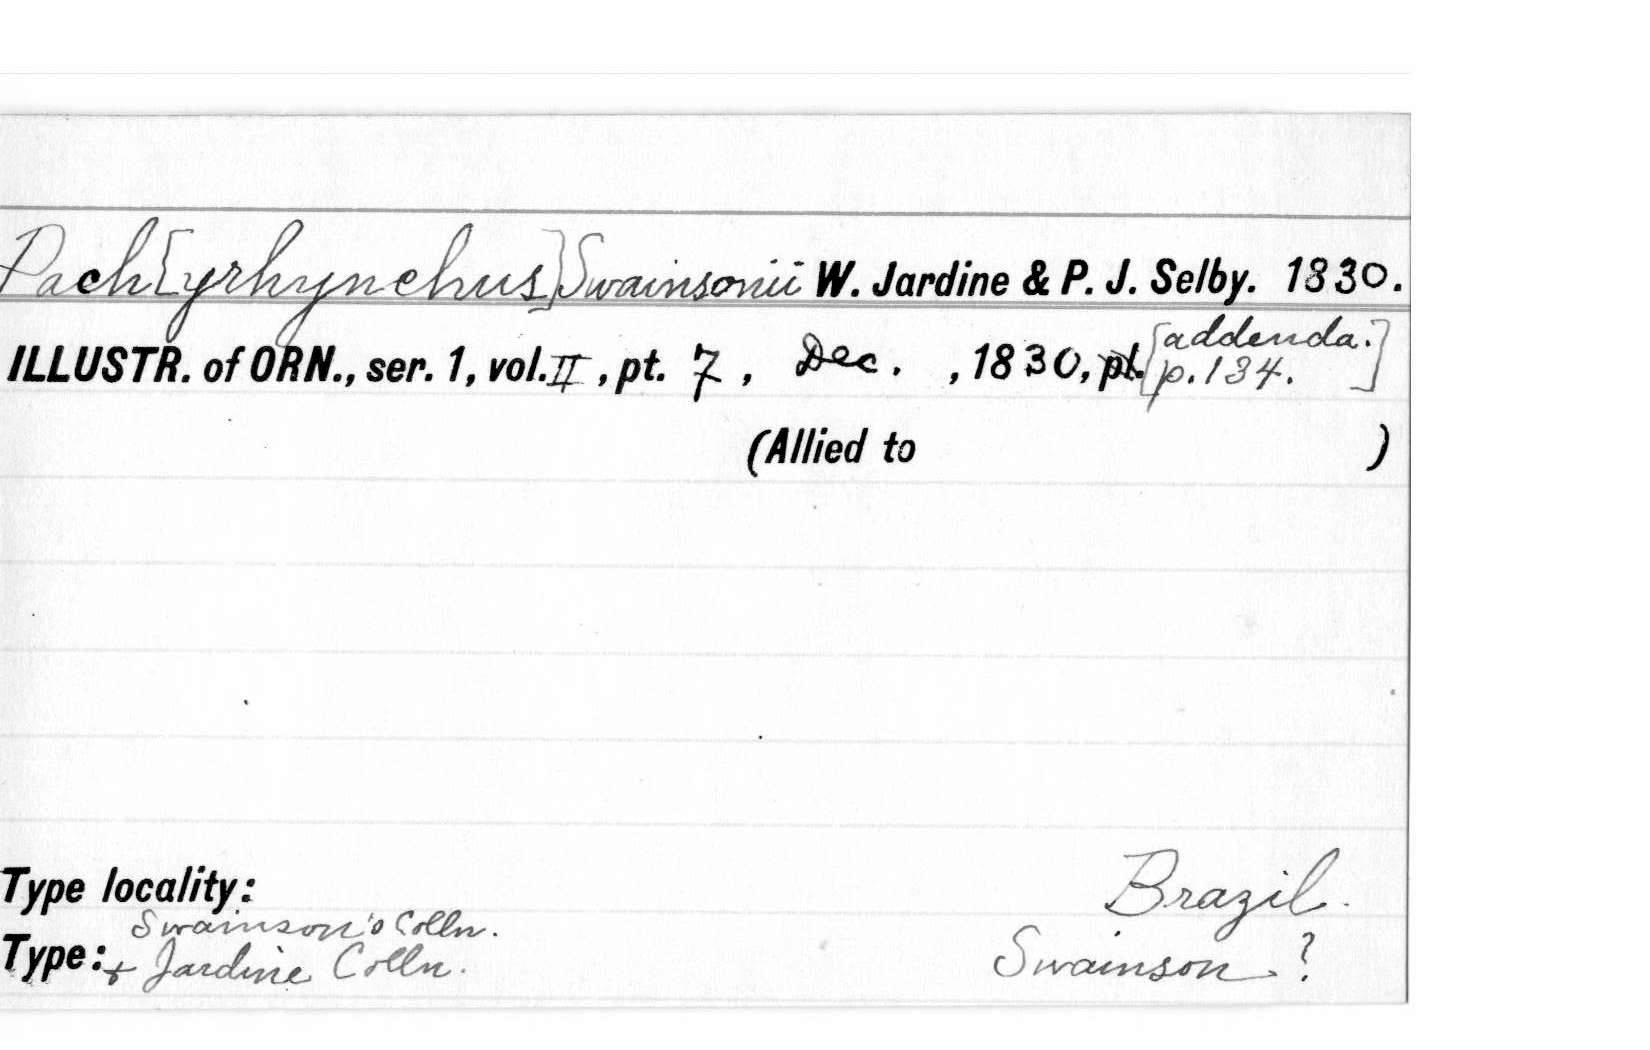 Pach[yrhynchus] Swainsonii W. Jardine & P. J. Selby. 1830.
ILLUSTR. of ORN., ser. 1, vol. II, pt. 7, Dec. , 1830, pl. [addenda. p. 134. ]
(Allied to )
Type locality: Brazil.
Swainson's Colln.
Type: + Jardine Colln. Swainson. ?